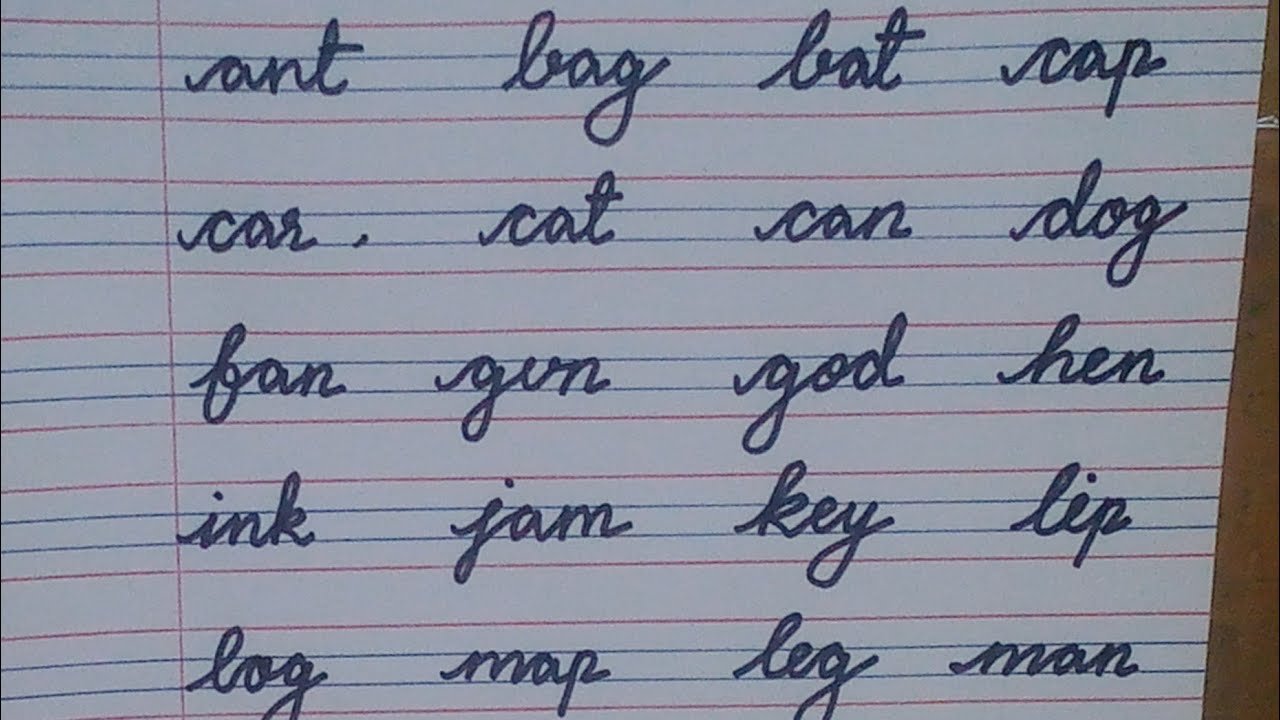 ant bag bat cap
car . cat can dog
fan gun god hen
ink jam key lip
log map leg man